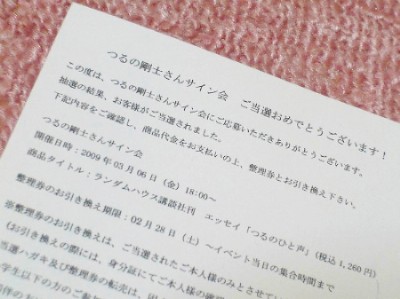 つるの剛士さんサイン会　ご当選おめでとうございます！
この度は、つるの剛士さんサイン会にご応募いただきありがとうございます。
抽選の結果、お客様がご当選されました。
下記内容をご確認し、商品代金をお支払いの上、整理券とお引き換え下さい。
つるの剛士さんサイン会
開催日時：2009年03月06日（金）18:00～
商品タイトル：ランダムハウス講談社刊　エッセイ「つるのひと声」（税込1,260円）
整理券のお引き換え期限：02月28日（土）～イベント当日の集合時間まで
※整理券のお引き換えは、ご当選されたご本人様のみとさせてい
（お引き換えの際には、身分証にてご本人様の確認
当選ハガキ及び整理券の転売は、固
学生以下の方のご